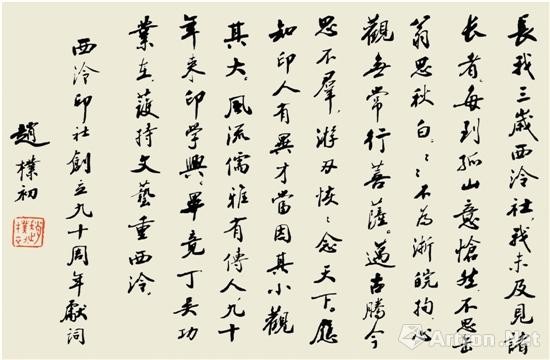 長我三歲西泠社,我未及見諸
長者,每到孤山意愴然,不思缶
翁思秋白。〻〻不為浙皖拘,心
觀無常行菩薩。邁古騰今
思不羣,游刃恢〻念天下。應
知印人有異才,當因其小觀
其大。風流儒雅有傳人,九十
年来印学興。畢竟丁吳功
業在,護持文藝重西泠。
西泠印社創立九十周年獻詞
趙樸初
Artron.Net